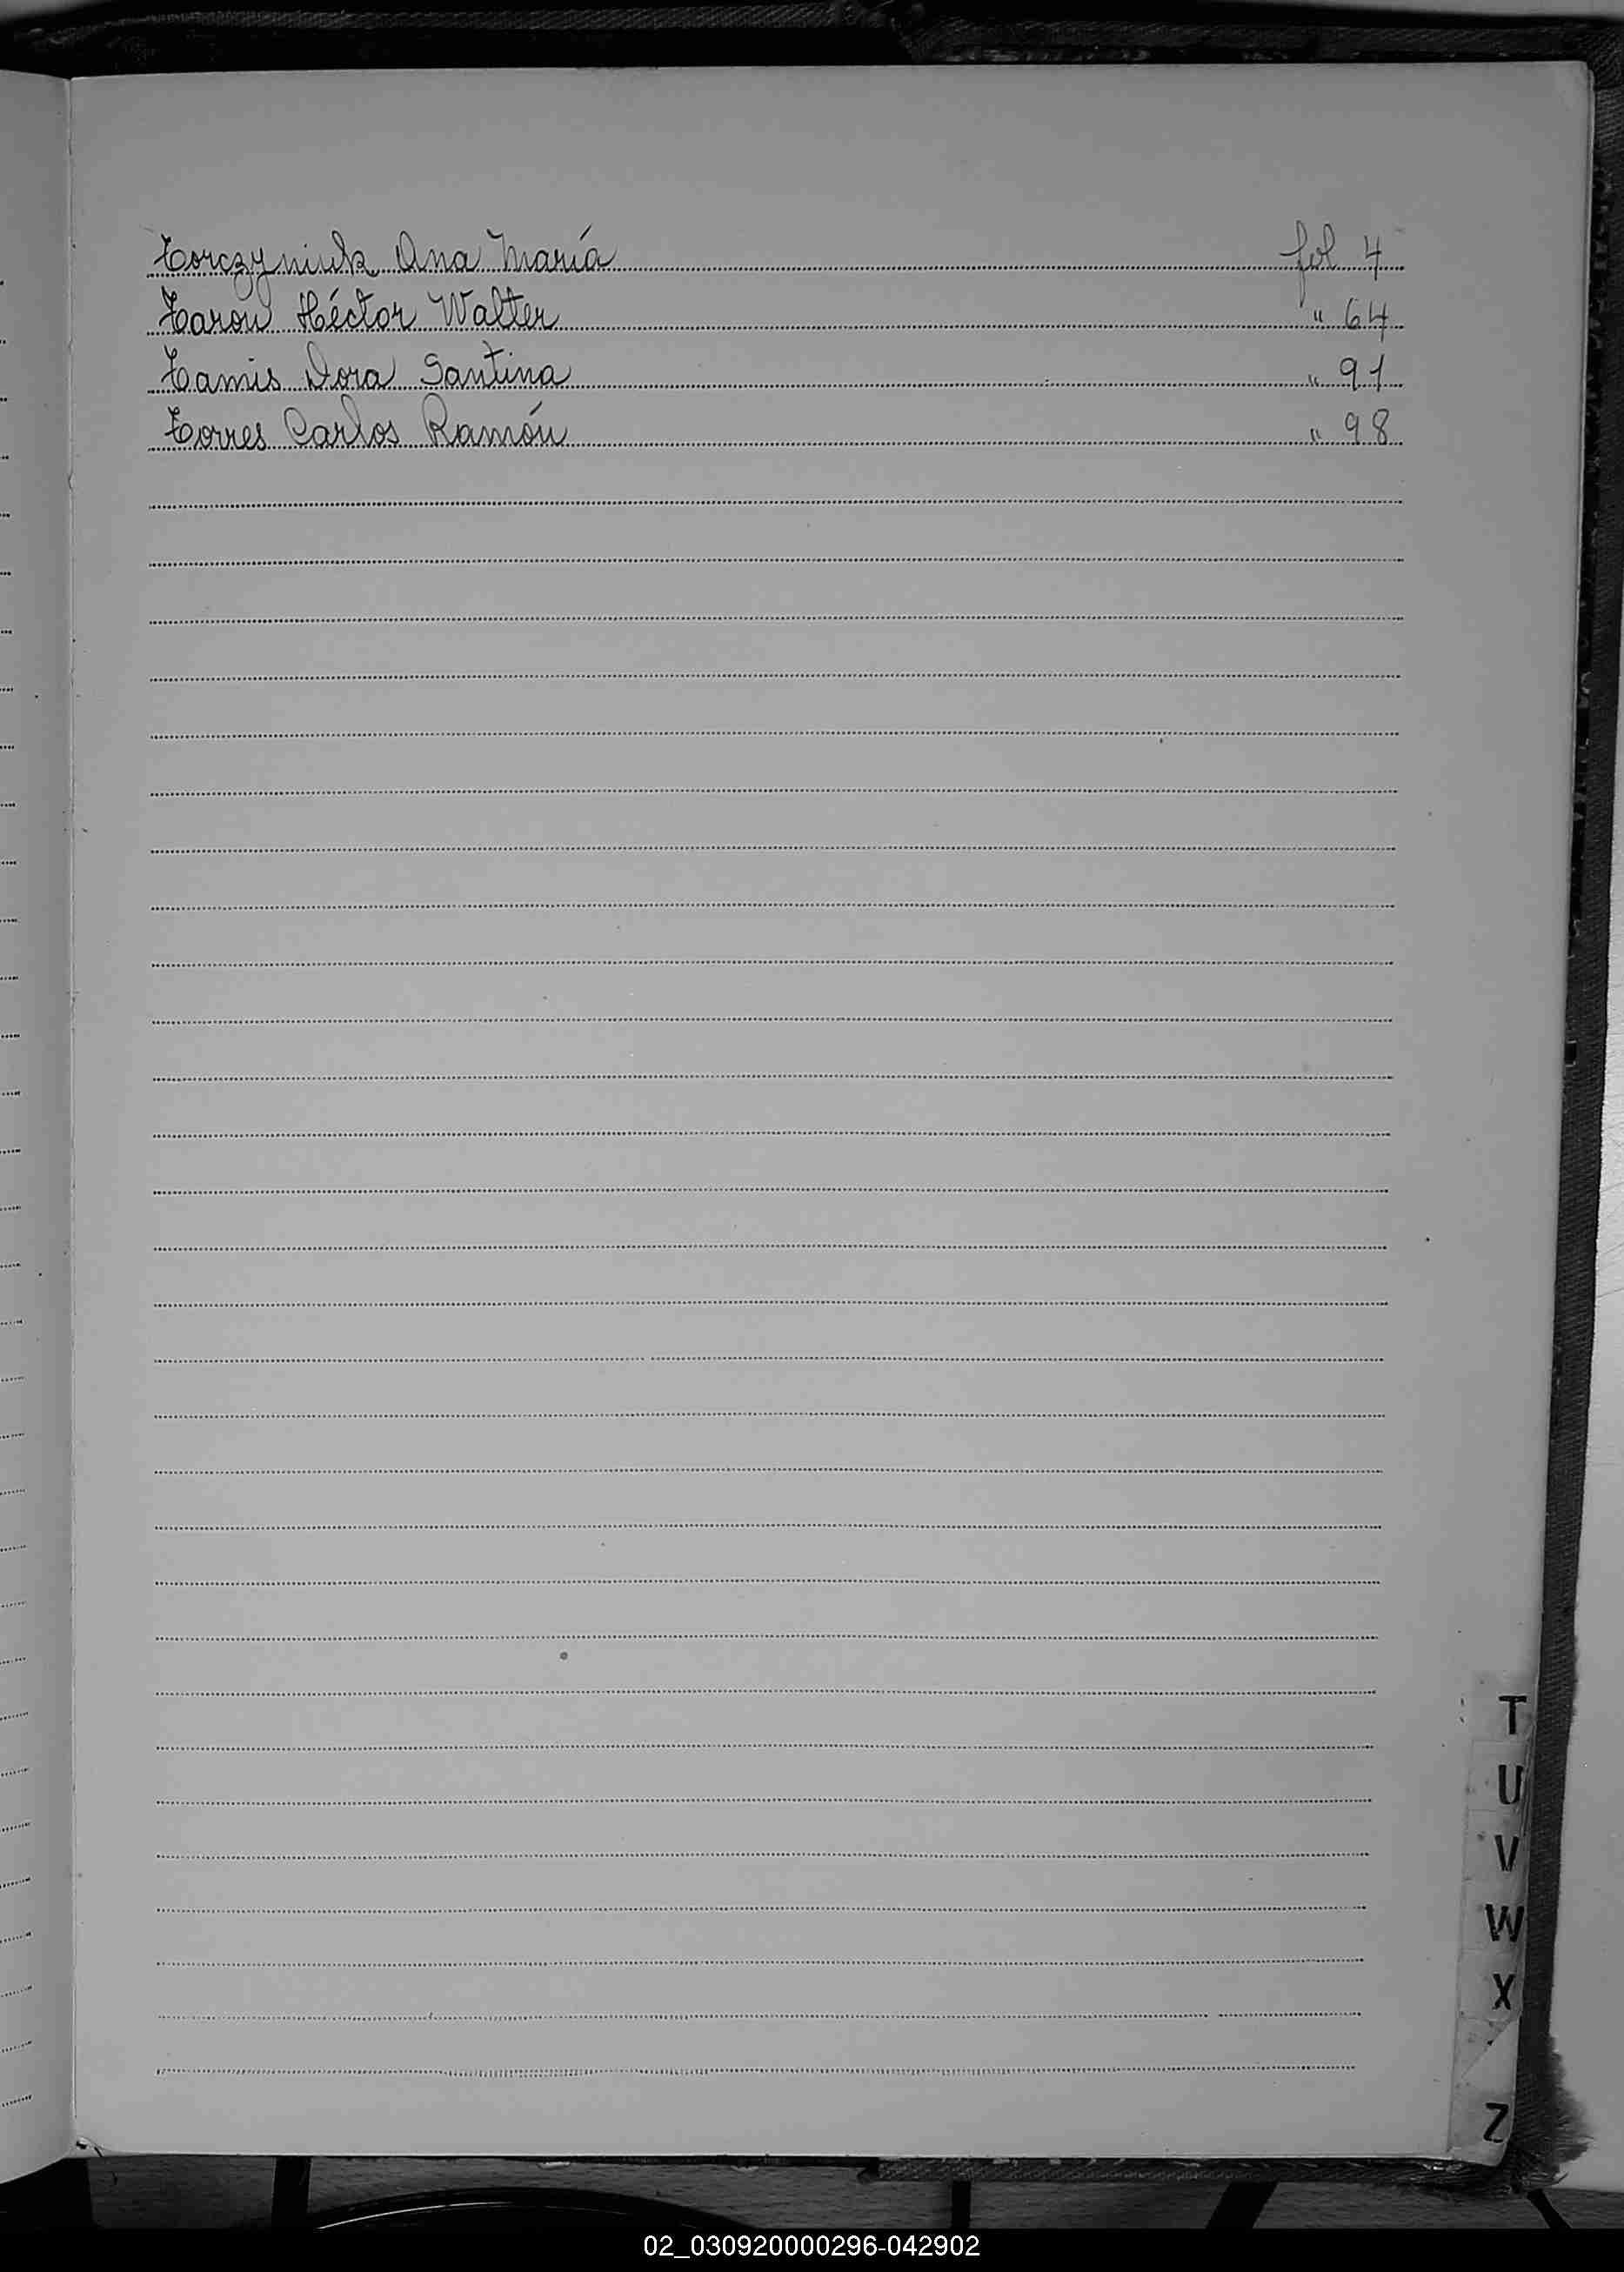 Torczyniuk Ana María fol 4
Tarou Héctor Walter " 64
Tamis Dora Santina " 91
Torres Carlos Ramón " 98
T
U
V
W
X
Z
02_030920000296-042902